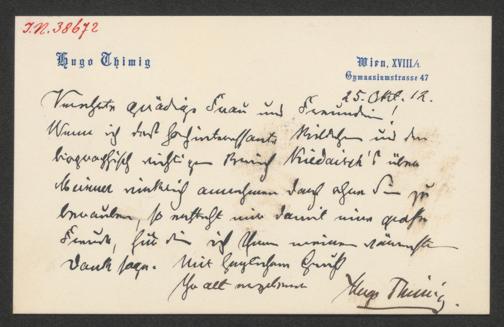 I.N. 38672
Hugo Thimig
Wien, XVIII/1.
Gymnasiumstrasse 47
25. Okt. 12.
Verehrte gnädige Frau und Freundin!
Wenn ich das hochinteressante Bildchen und den
biographisch wichtigen Brief
Meixner wirklich annehmen darf ohne Sie zu
berauben, so entsteht mir damit eine große
Freude, für die ich Ihnen meinen wärmsten
Dank sage. Mit herzlichem Gruß
Ihr alt ergebener Hugo Thimig.